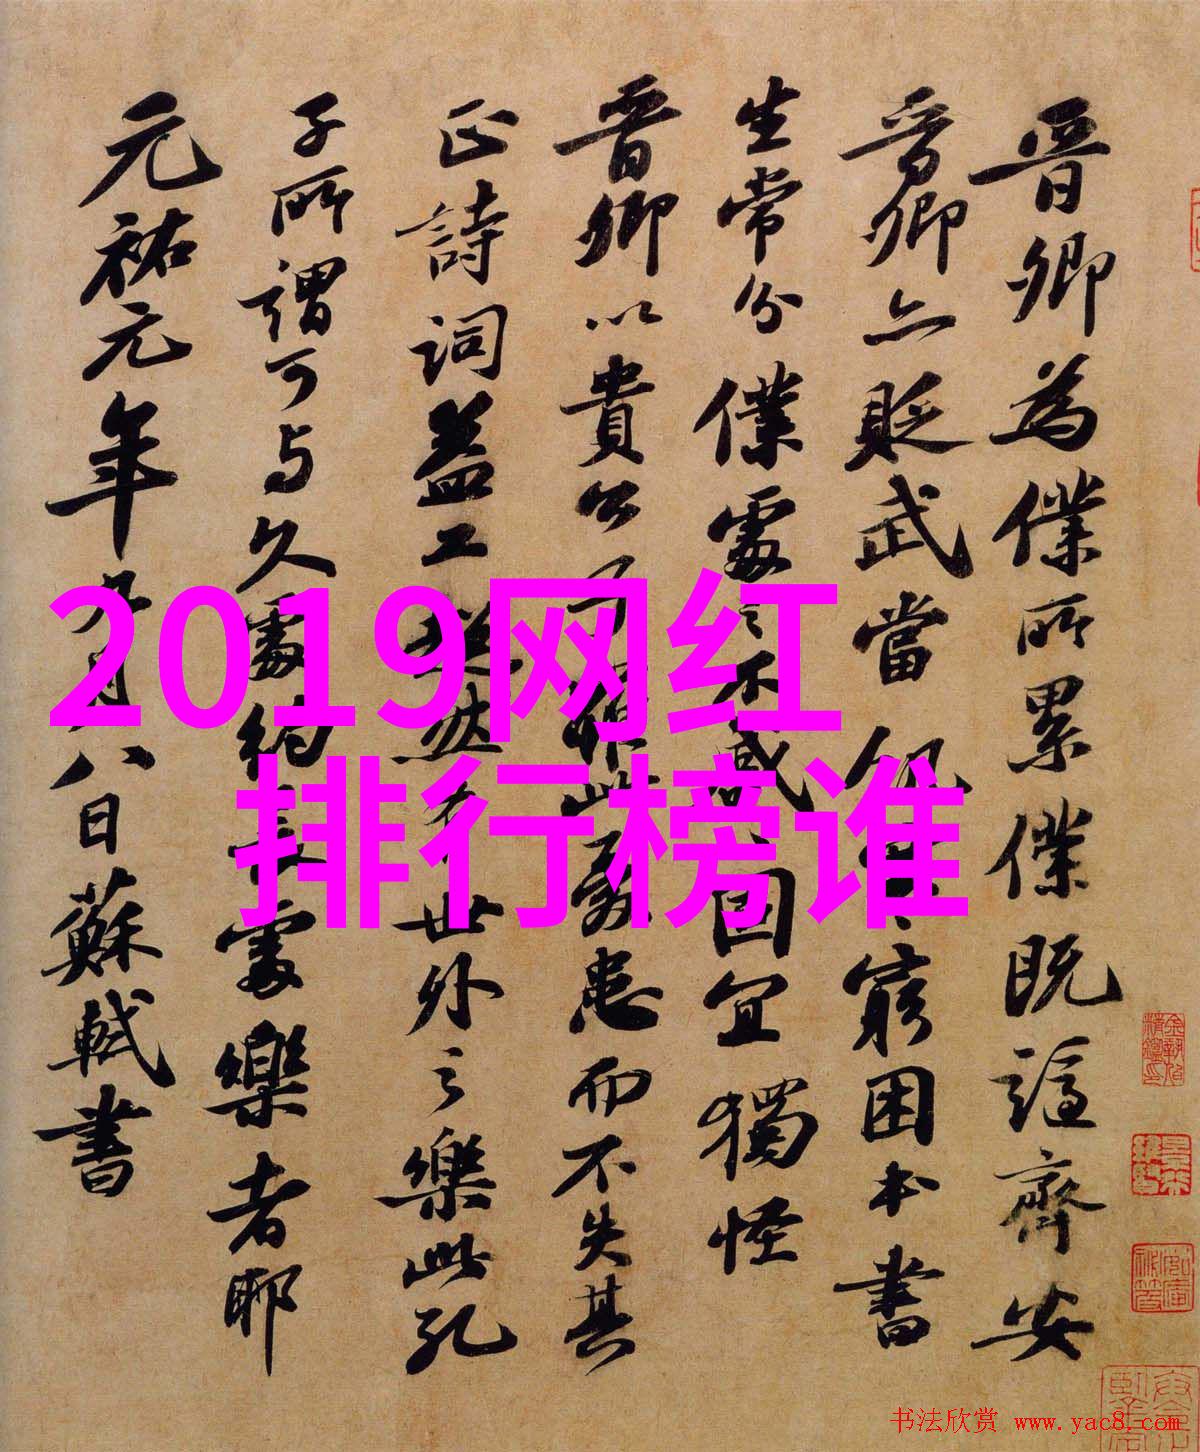 晉卿為僕所累僕既謫齊安
晉卿亦貶武當窮困本書
生常分僕處之不戚固宜獨怪
晉卿以貴公子罹此憂患而不失其
正詩詞益工超然有世外之樂此孔
子所謂可与久處約長處樂者耶
元祐元年九月八日蘇軾書
2019网红
排行榜谁
书法欣赏 www.yac8.com